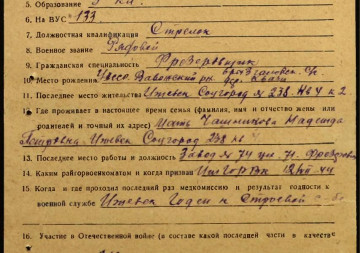 5. Образование 7 кл.
6. На ВУС № 133
7. Должностная квалификация Стрелок
8. Военное звание Рядовой
9. Гражданская специальность Фрезеровщик
10. Место рождения Увазский р-н
11. Последнее место жительства Ижевск Соцгород я 238 кв 4 к 2
12. Где проживает в настоящее время семья (фамилия, имя и отчество жены или
родителей и точный их адрес) Мать Чашникова Надежда
Петровна. Ижевск Соцгород 238 кв
13. Последнее место работы и должность Завод № 74 Фрезеров
14. Каким райгорвоенкоматом и когда призван Иж ГорВК
15. Когда и где проходил последний раз медкомиссию и результат годности к
военной службе Ижевск Годен к строевой
16. Участие в Отечественной войне (в составе какой последней части в качестве